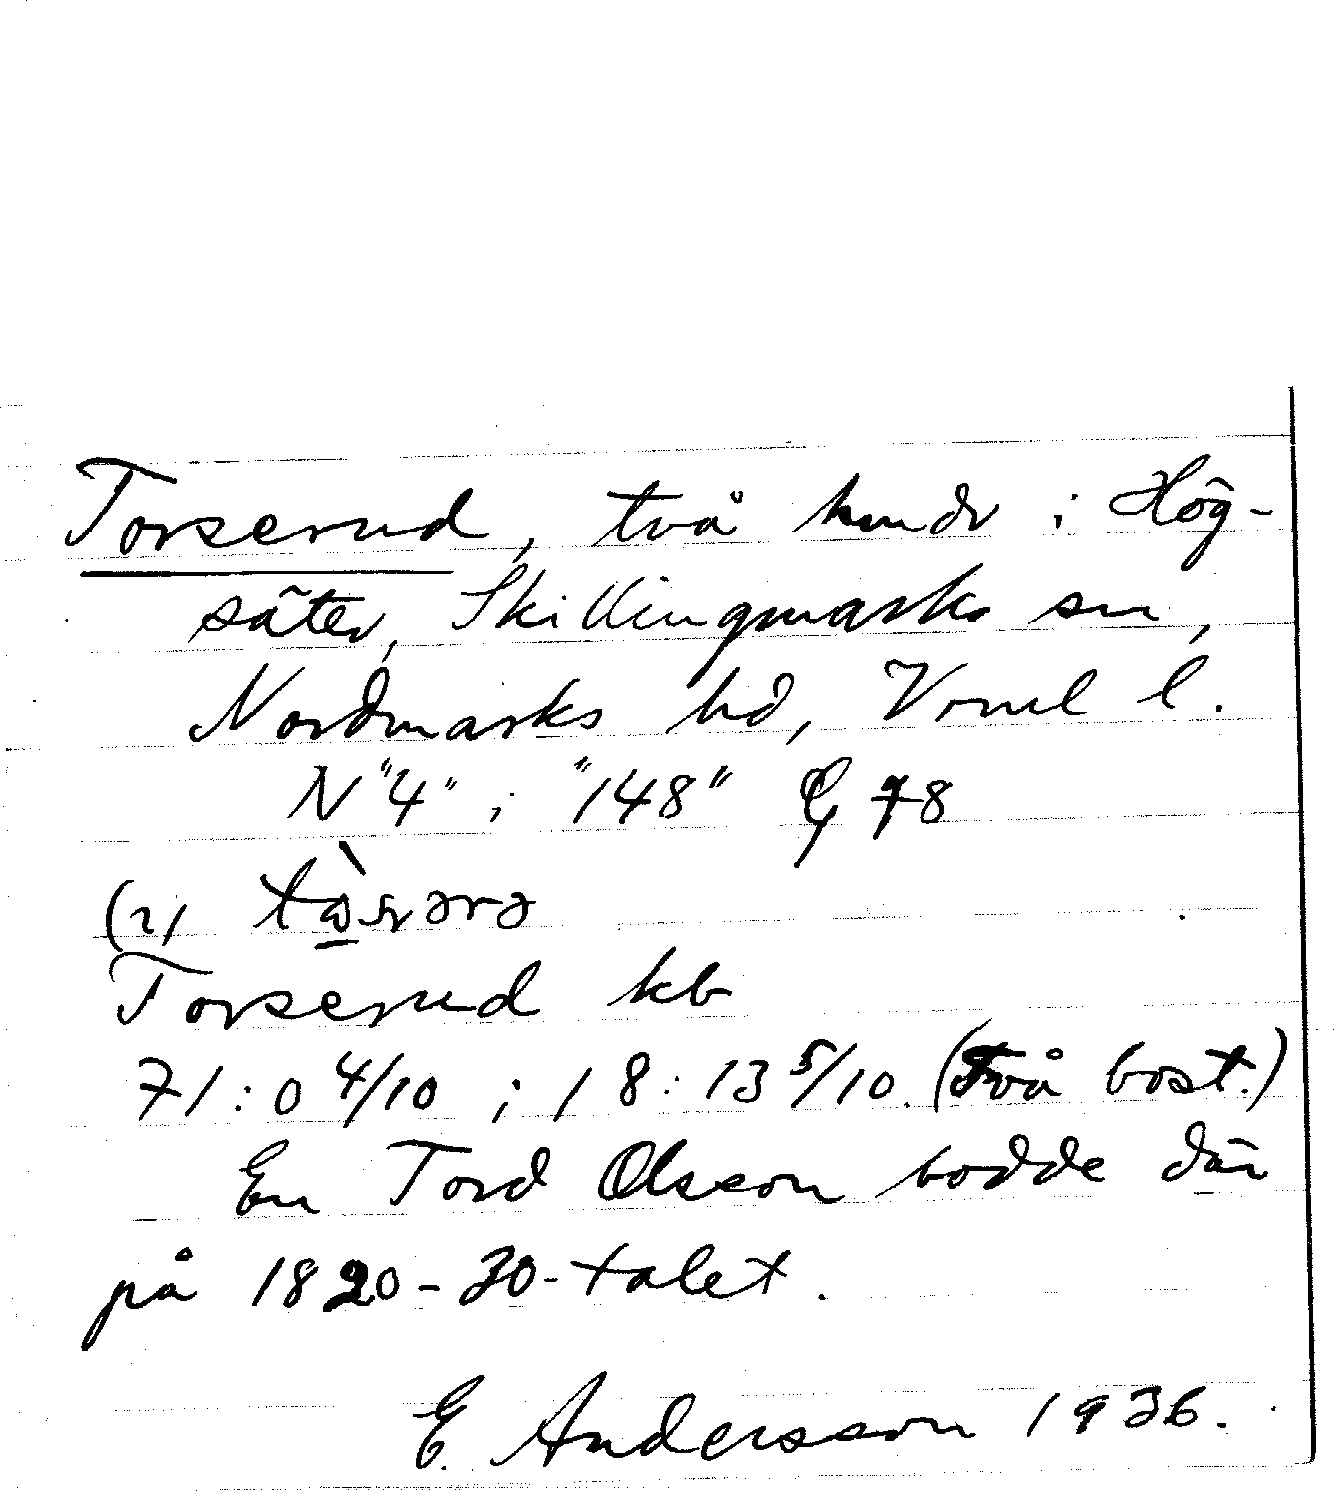 Torserud, två hmdr i Hög-
säter, Skillingmarks sn,
Nordmarks hd, Vrml l.
N "4" i "148" G 78
(2)
Torserud kb
71:0 4/10 ; 18:13 5/10. (Två bost.)
En Tord Olsson bodde där
på 1820-30-talet.
E. Andersson 1936.